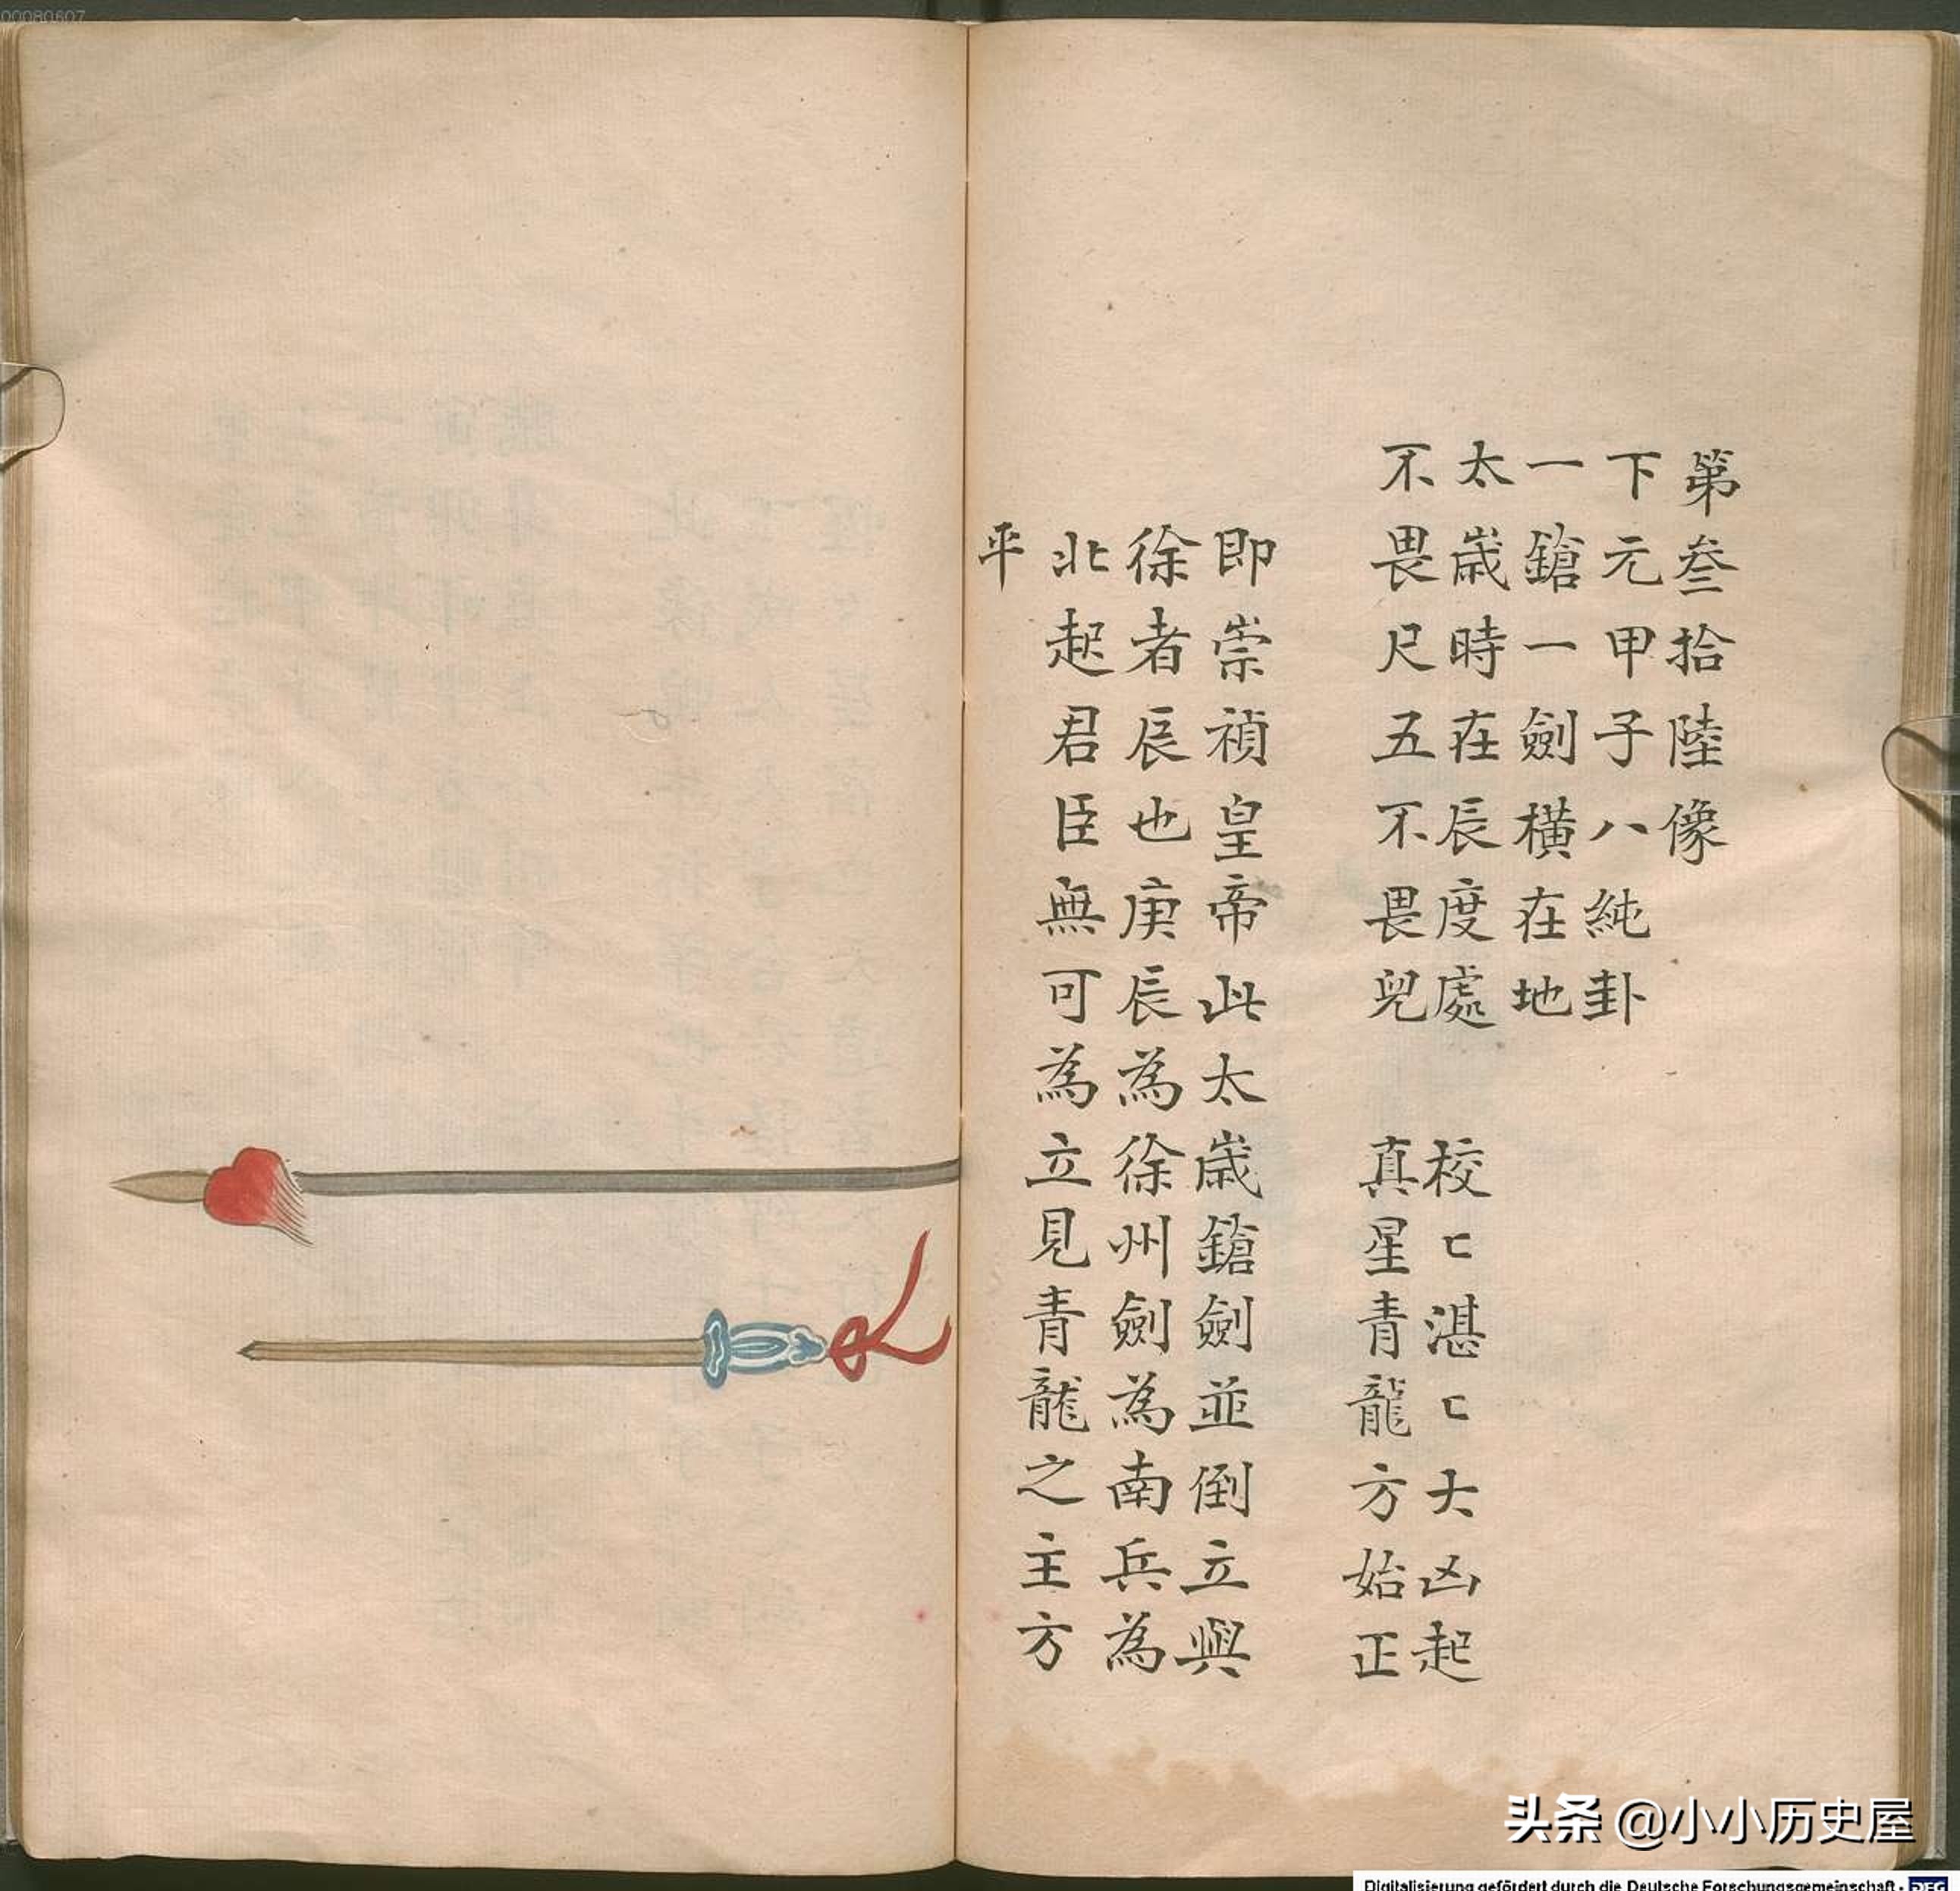 00080607
第叁拾陸像
下元甲子八純卦
一鎗一劍橫在地
太歲時在辰度處 校㔾湛㔾大凶起
不畏尺五不畏兒 真星青龍方始正
即崇禎皇帝此太歲鎗劍並倒立興
徐者辰也庚辰為徐州劍為南兵為
北起君臣無可為立見青龍之主方
平
头条 @小小历史屋
Digitalisierung gefördert durch die Deutsche Forschungsgemeinschaft - DFG